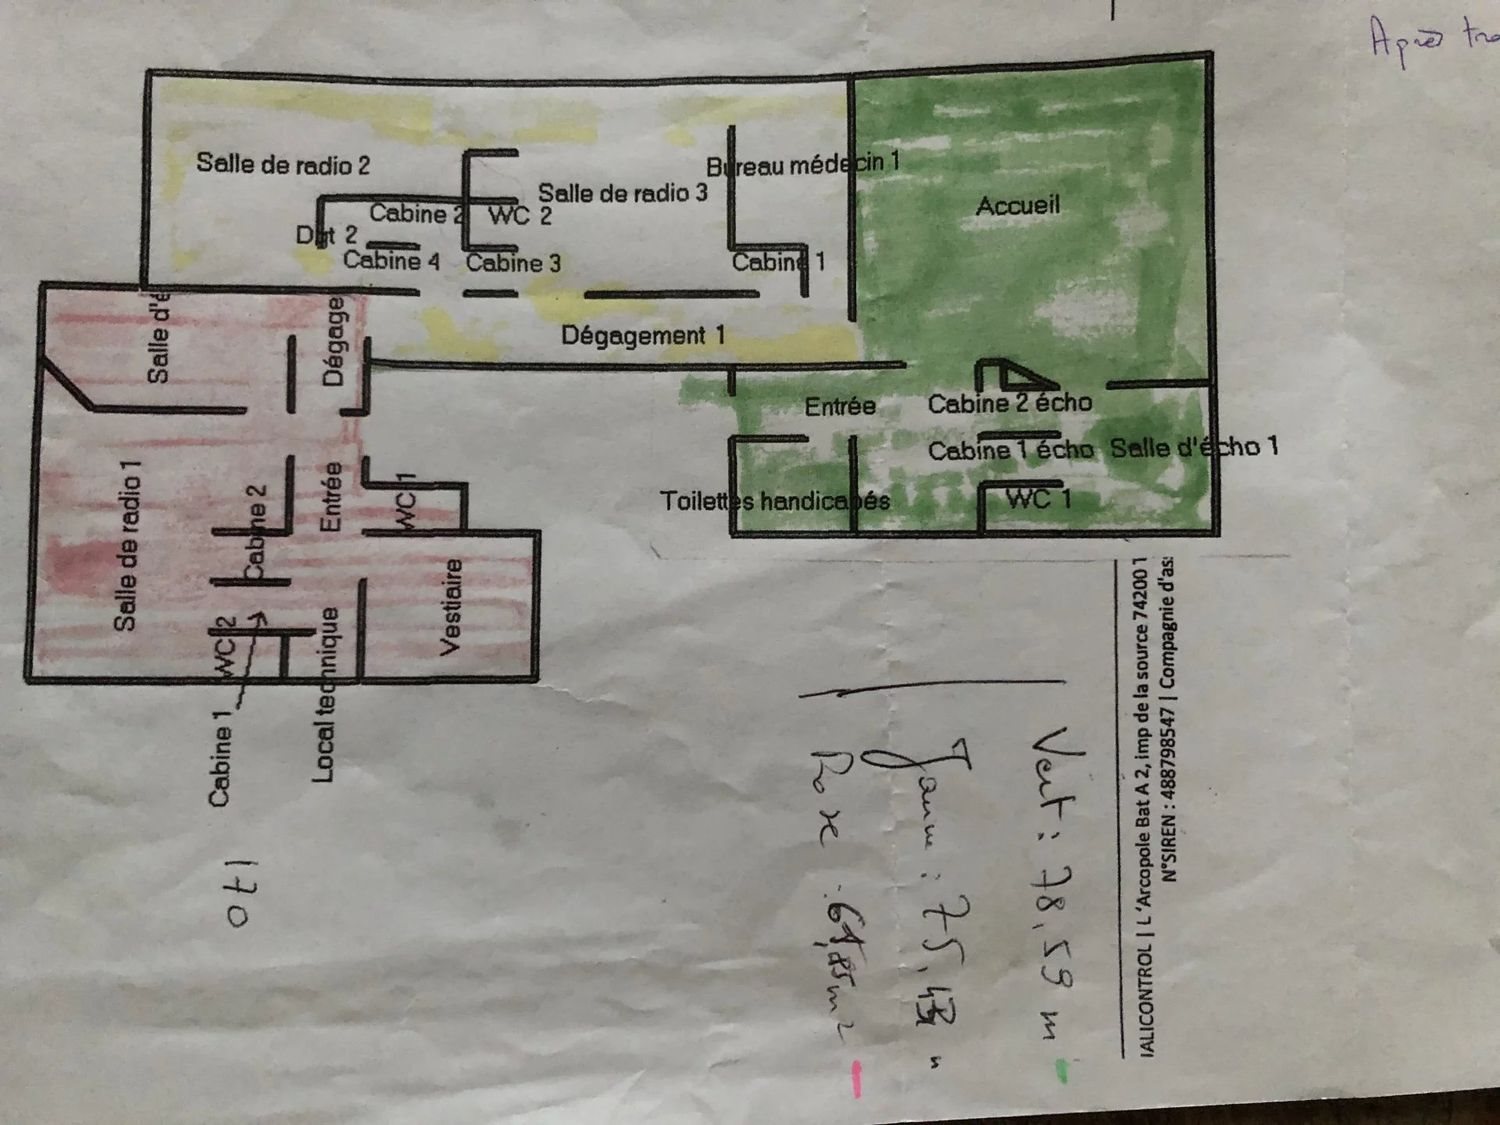 Après
Salle de radio 2
Bureau médecin 1
Salle de radio 3
Accueil
Cabine 2
WC 2
Cabine 4
Cabine 3
Cabine 1
Salle d'é
Dégage
Dégagement 1
Entrée
Cabine 2 écho
Cabine 1 écho
Salle d'écho 1
Toilettes handicapés
WC 1
Salle de radio 1
Cabine 2
Entrée
WC 1
Vestiaire
WC 2
Local technique
Cabine 1
170
Vert : 78,59 m
Jaune : 75,43 "
Rose : 61,85 m2
IALICONTROL | L'Arcopole Bat A 2, imp de la source 74200 T
N°SIREN : 488798547 | Compagnie d'as